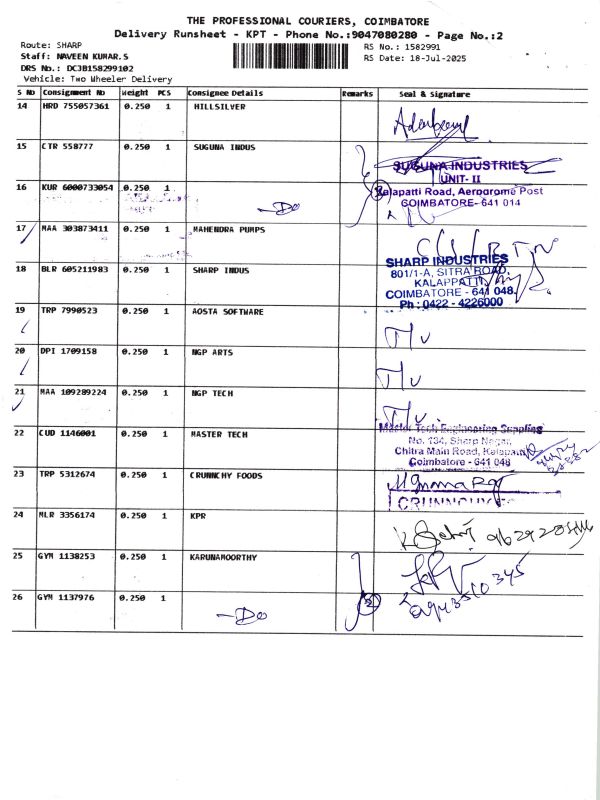 THE PROFESSIONAL COURIERS, COIMBATORE
Delivery Runsheet - KPT - Phone No.:9047080280 - Page No.:2
Route: SHARP
RS No.: 1582991
Staff: NAVEEN KUMAR.S
RS Date: 18-Jul-2025
DRS No.: DCJB158299102
Vehicle: Two Wheeler Delivery
S No Consignment No Weight PCS Consignee Details Remarks Seal & Signature
14 HRD 755057361 0.250 1 HILLSILVER
15 CTR 558777 0.250 1 SUGUNA INDUS
SUGUNA INDUSTRIES
UNIT- II
16 KUR 6000733054 0.250 1 -Do 2
Kalapatti Road, Aerodrome Post
COIMBATORE- 641 014
17 MAA 303873411 0.250 1 MAHENDRA PUMPS
18 BLR 605211983 0.250 1 SHARP INDUS
SHARP INDUSTRIES
801/1-A, SITRA ROAD,
KALAPPATTI,
COIMBATORE - 641 048.
Ph : 0422 - 4226000
19 TRP 7990523 0.250 1 AOSTA SOFTWARE
20 DPI 1709158 0.250 1 NGP ARTS
21 MAA 109289224 0.250 1 NGP TECH
22 CUD 1146001 0.250 1 MASTER TECH
Master Tech Engineering Supplies
No. 134, Sharp Nagar,
Chitra Main Road, Kalapatti
Coimbatore - 641 048
23 TRP 5312674 0.250 1 CRUNNCHY FOODS
24 MLR 3356174 0.250 1 KPR
25 GYM 1138253 0.250 1 KARUNAMOORTHY
26 GYM 1137976 0.250 1 -Do 2